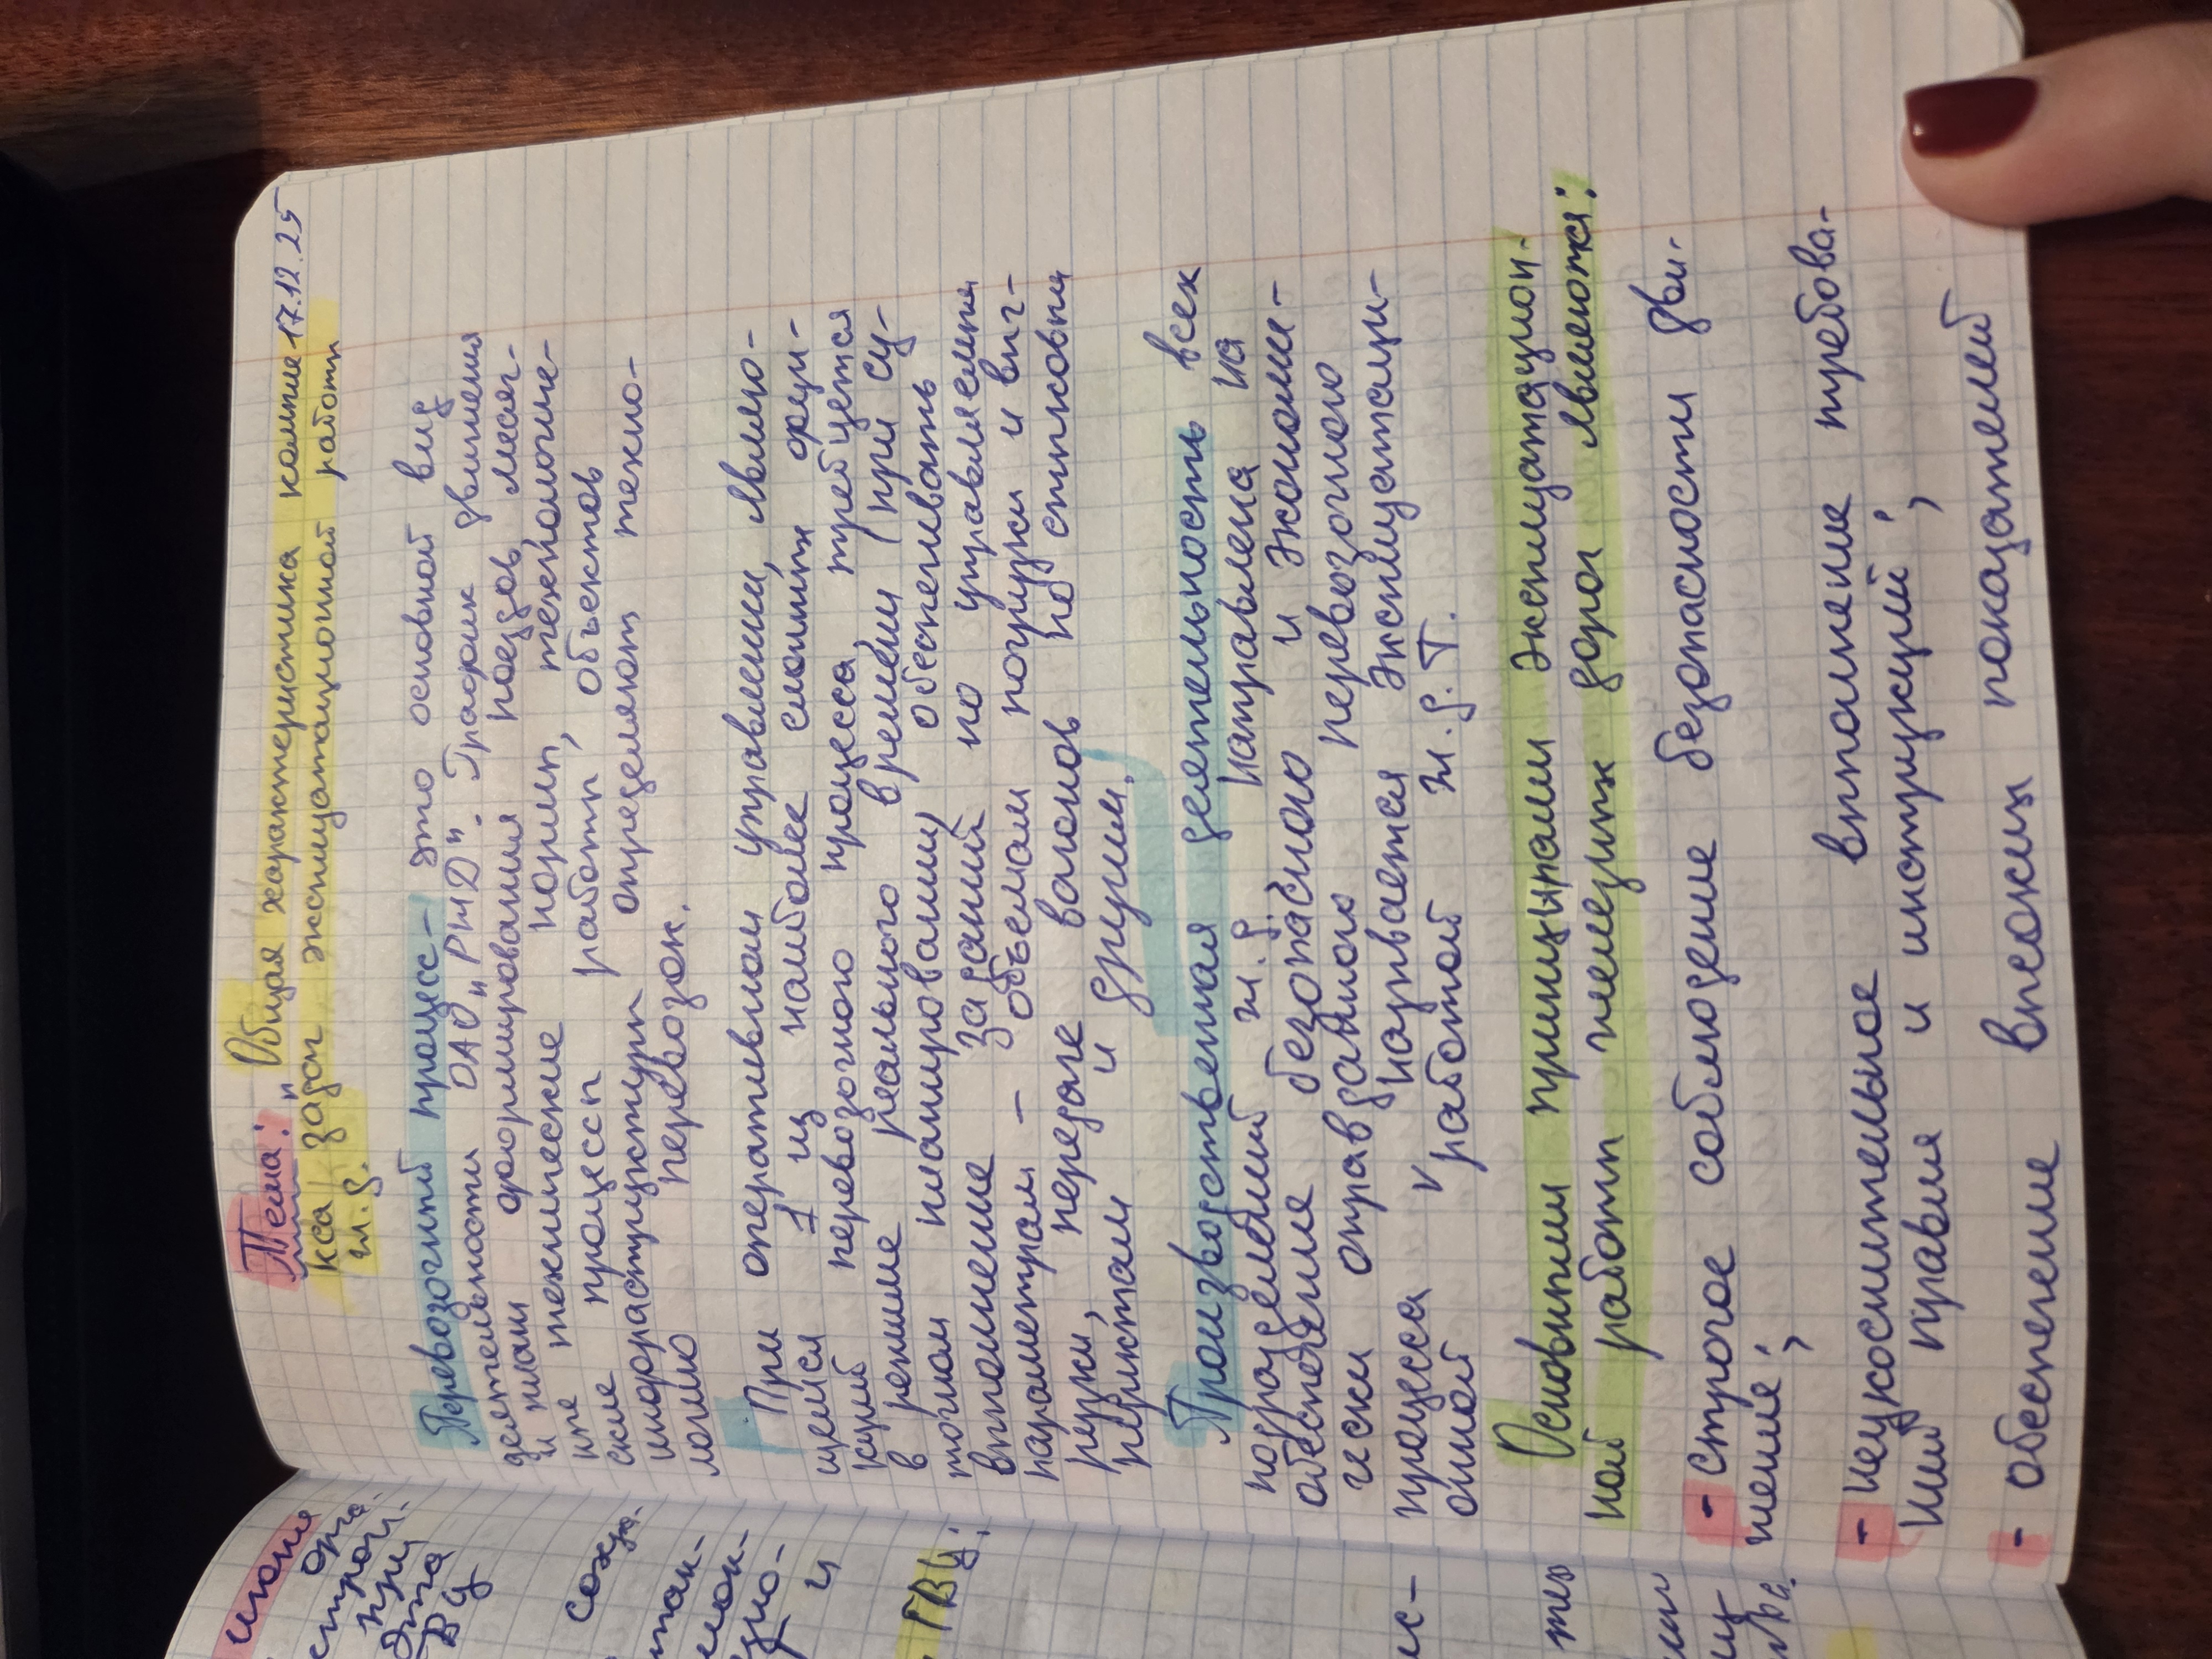 17.12.25
Тема: "Общая характеристика комплек-
са задач эксплуатационной работы
ж.д.
Перевозочный процесс - это основной вид
деятельности ОАО "РЖД". График движения
и план формирования поездов, месяч-
ные технические нормы, технологиче-
ские процессы работы, объектов
инфраструктуры определяют техно-
логию перевозок.
При оперативном управлении, являю-
щемся 1 из наиболее сложных функ-
кций перевозочного процесса, требуется
в режиме реального времени (при су-
точном планировании) обеспечивать
выполнение заданий по управлению
параметрам - объемам погрузки и выг-
рузки, передаче вагонов по стыковым
пунктам и другим.
Производственная деятельность всех
подразделений ж.д. направлена на
обеспечение безопасного и экономи-
чески оправданного перевозочного
процесса и называется эксплуатаци-
онной работой ж.д.т.
Основными принципами эксплуатацион-
ной работы железных дорог являются:
- строгое соблюдение безопасности дви-
жения;
- неукоснительное выполнение требова-
ний правил и инструкций;
- обеспечение высоких показателей
ГВЦ: